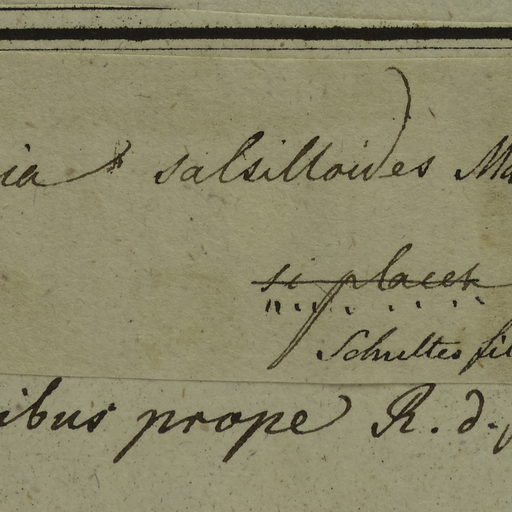 ia salsilloides Ma
si placet
Schultes fil
ibus prope R. d.